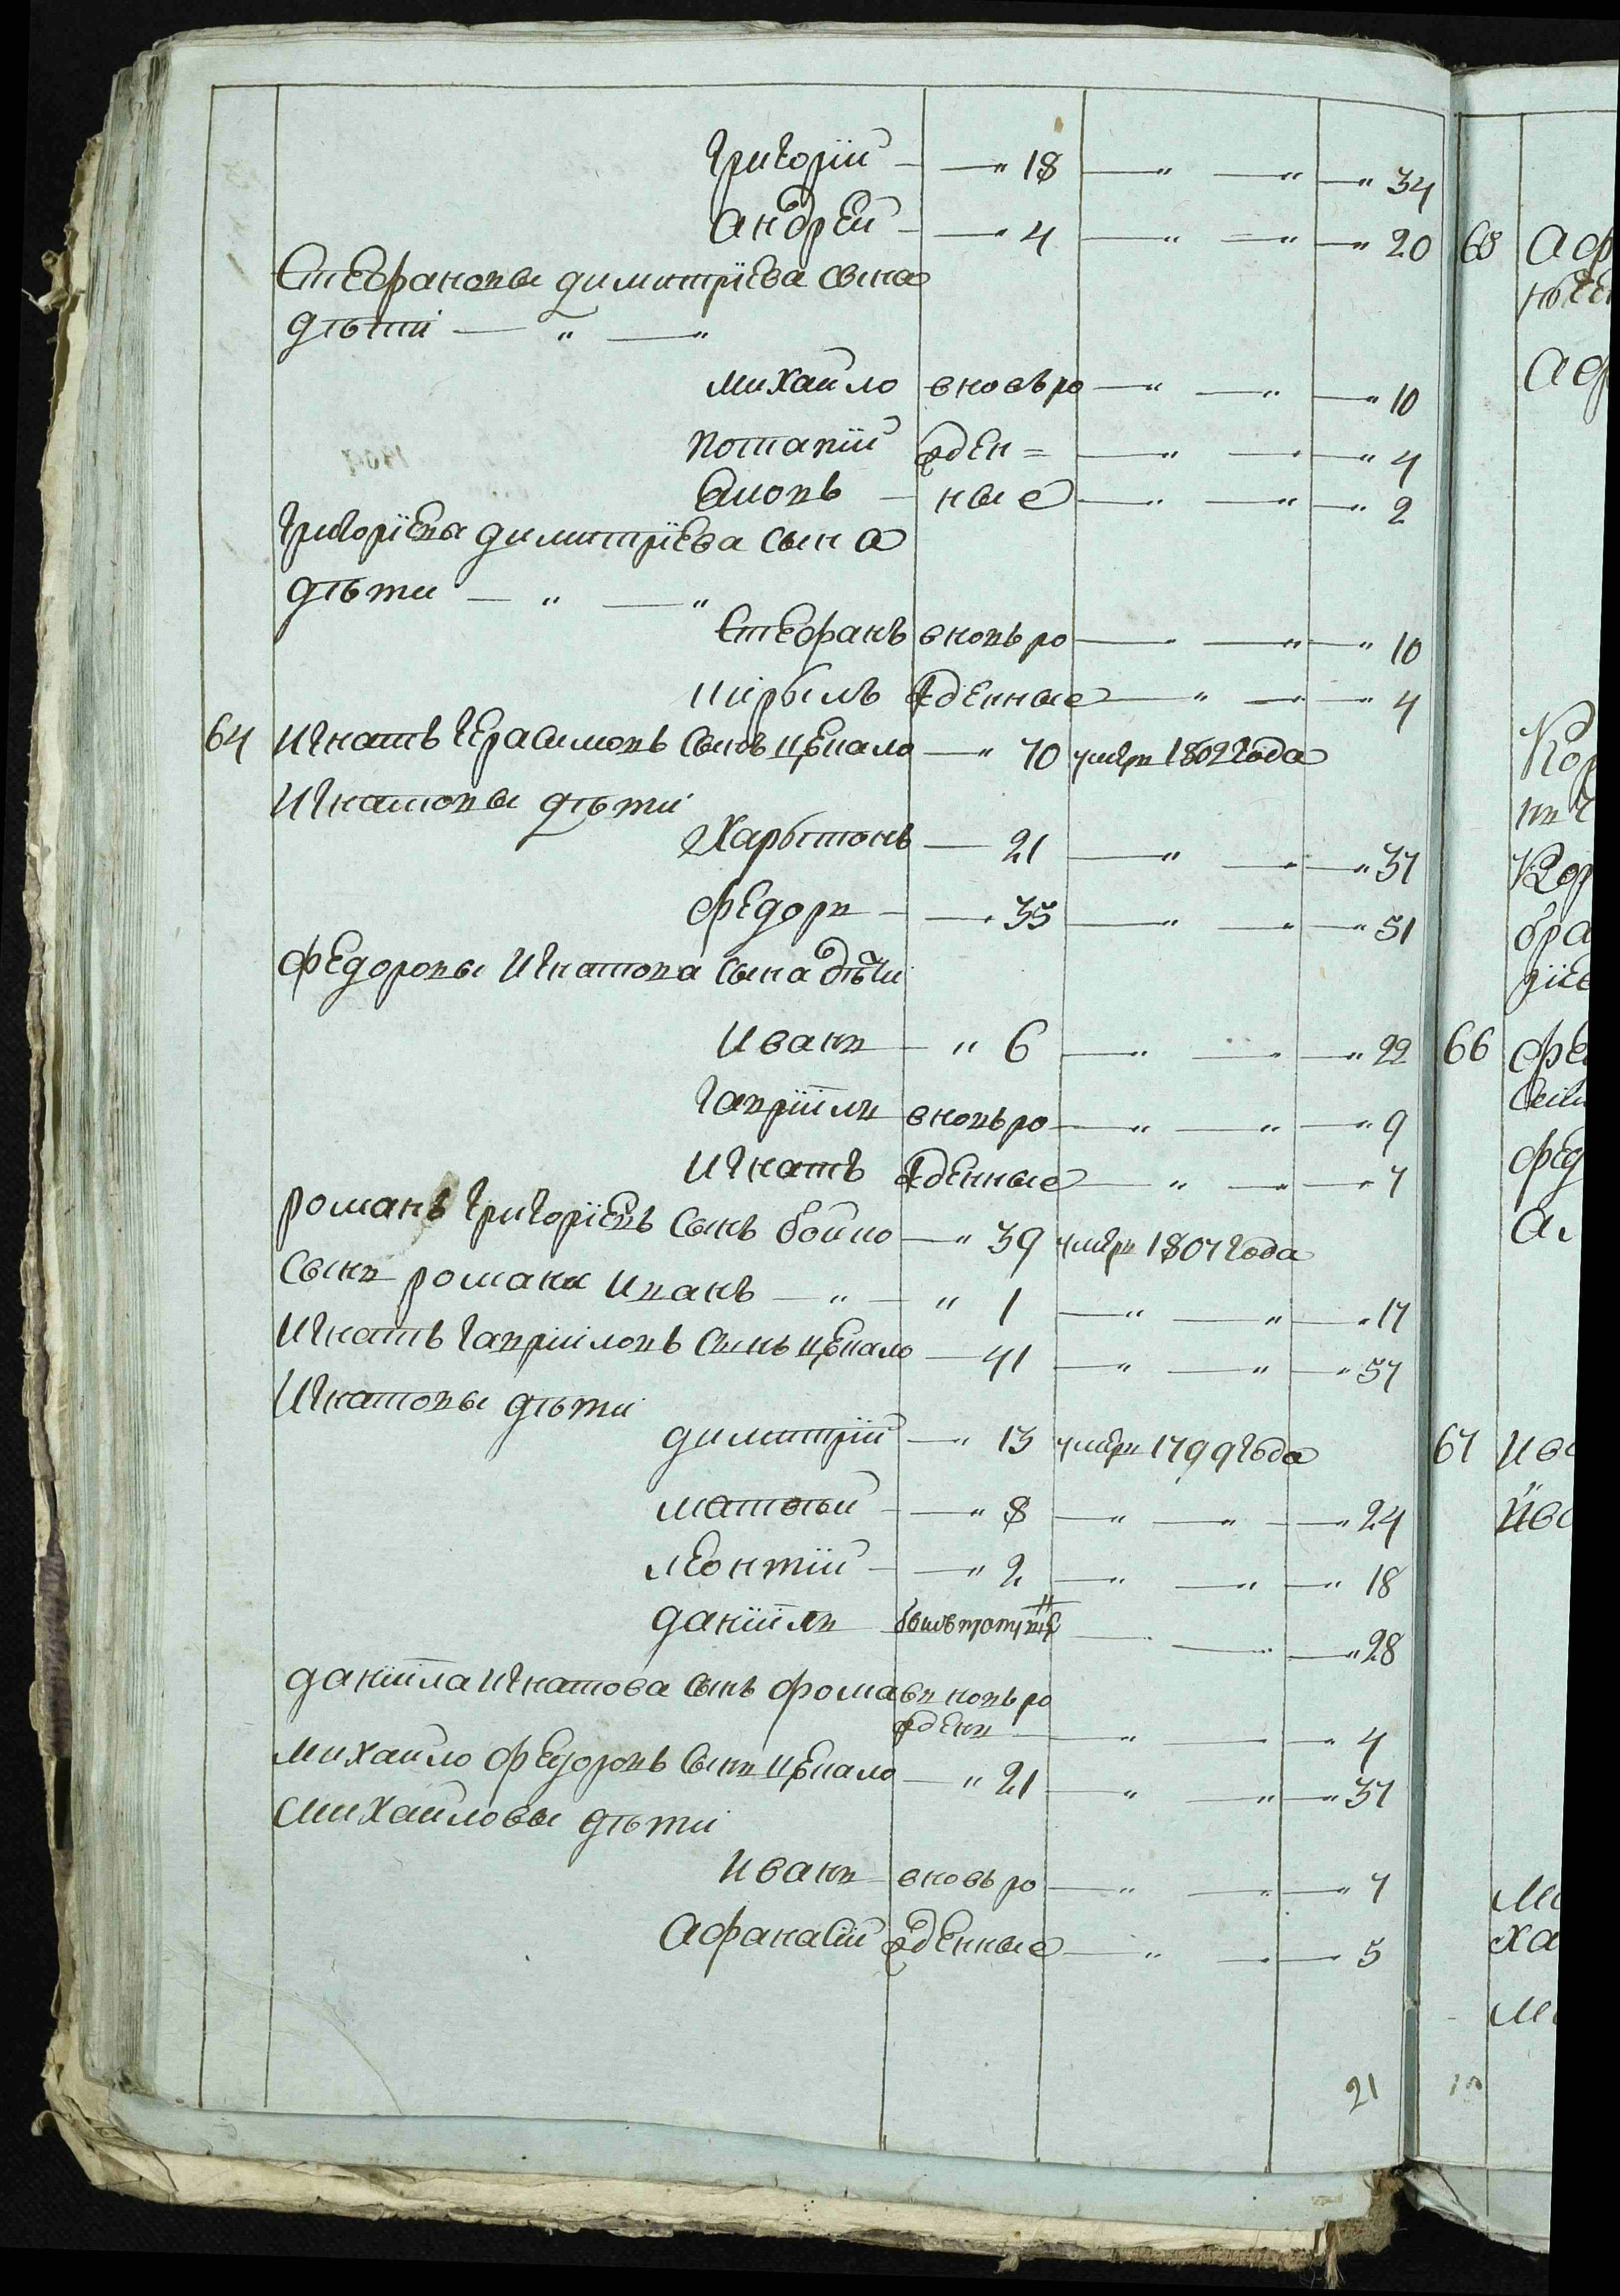 Григорїй — 18 — — 34
Андрей — 4 — — 20
Стефановы димитрїева сына
дѣти — —
михайло вновь ро — — 10
потапїй жден= — — 4
Симонъ — ные — — 2
Григорїевы димитрїева сына
дѣти — —
Стефанъ вновь ро — — 10
кирылъ жденные — — 4
64 Игнатъ Герасимовъ сынъ цекало — 70 умре 1802 года
Игнатовы дѣти
Харытонъ — 21 — — 37
федоръ — 35 — — 51
федоровы Игнатова сына дѣти
Иванъ — 6 — — 22
Гаврїилъ вновь ро — — 9
Игнатъ жденные — — 7
романъ Григорїевъ сынъ бойко — 39 умре 1807 года
сынъ романа Иванъ — 1 — — 17
Игнатъ Гаврїиловъ сынъ цекало — 41 — — 57
Игнатовы дѣти
димитрїй — 13 умре 1799 года
матвѣй — 8 — — 24
леонтїй — 2 — — 18
данїилъ — — 28
данїила Игнатова сынъ фома въ новь ро
жденъ — — 4
михайло федоровъ сынъ цекало — 21 — — 37
михайловы дѣти
Иванъ вновь ро — — 7
Афанасїй жденные — — 5
21
68
66
67